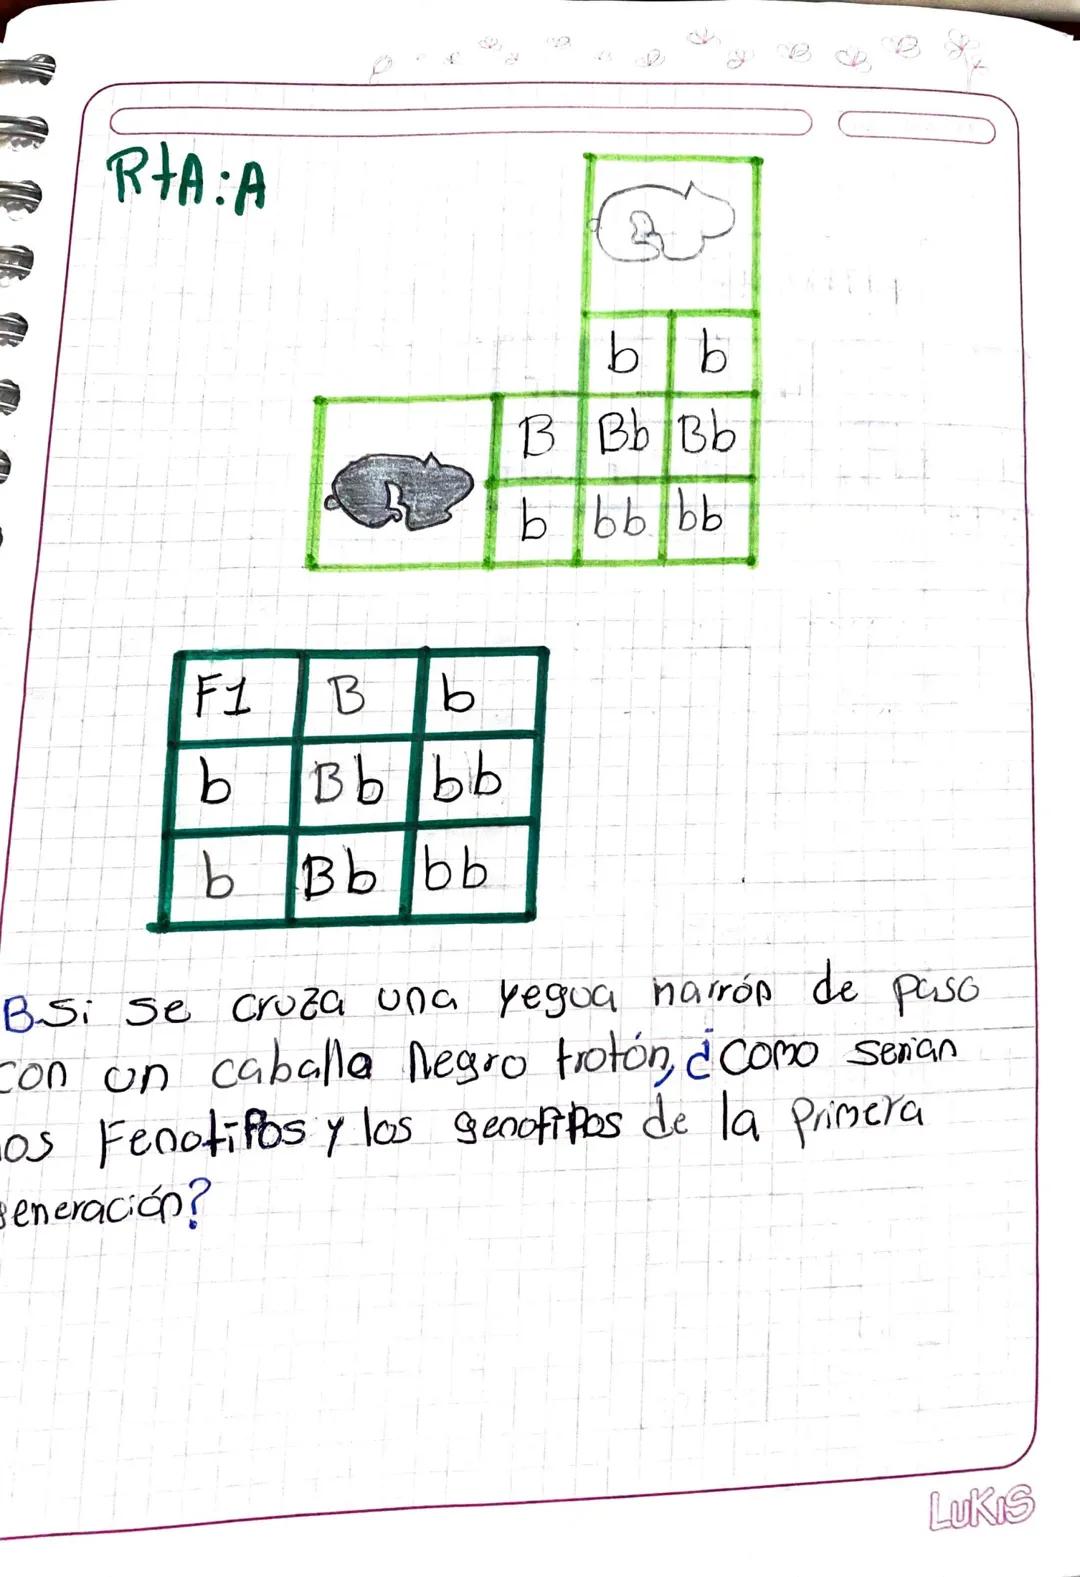 RtA:A
b b
B Bb Bb
b bb bb
F1 B b
b Bb bb
b Bb bb
B.Si se cruza una yegua narrón de paso
con un caballo Negro trotón, ¿como serian
los Fenotipos y los genotipos de la Primera
generación?
LUKIS